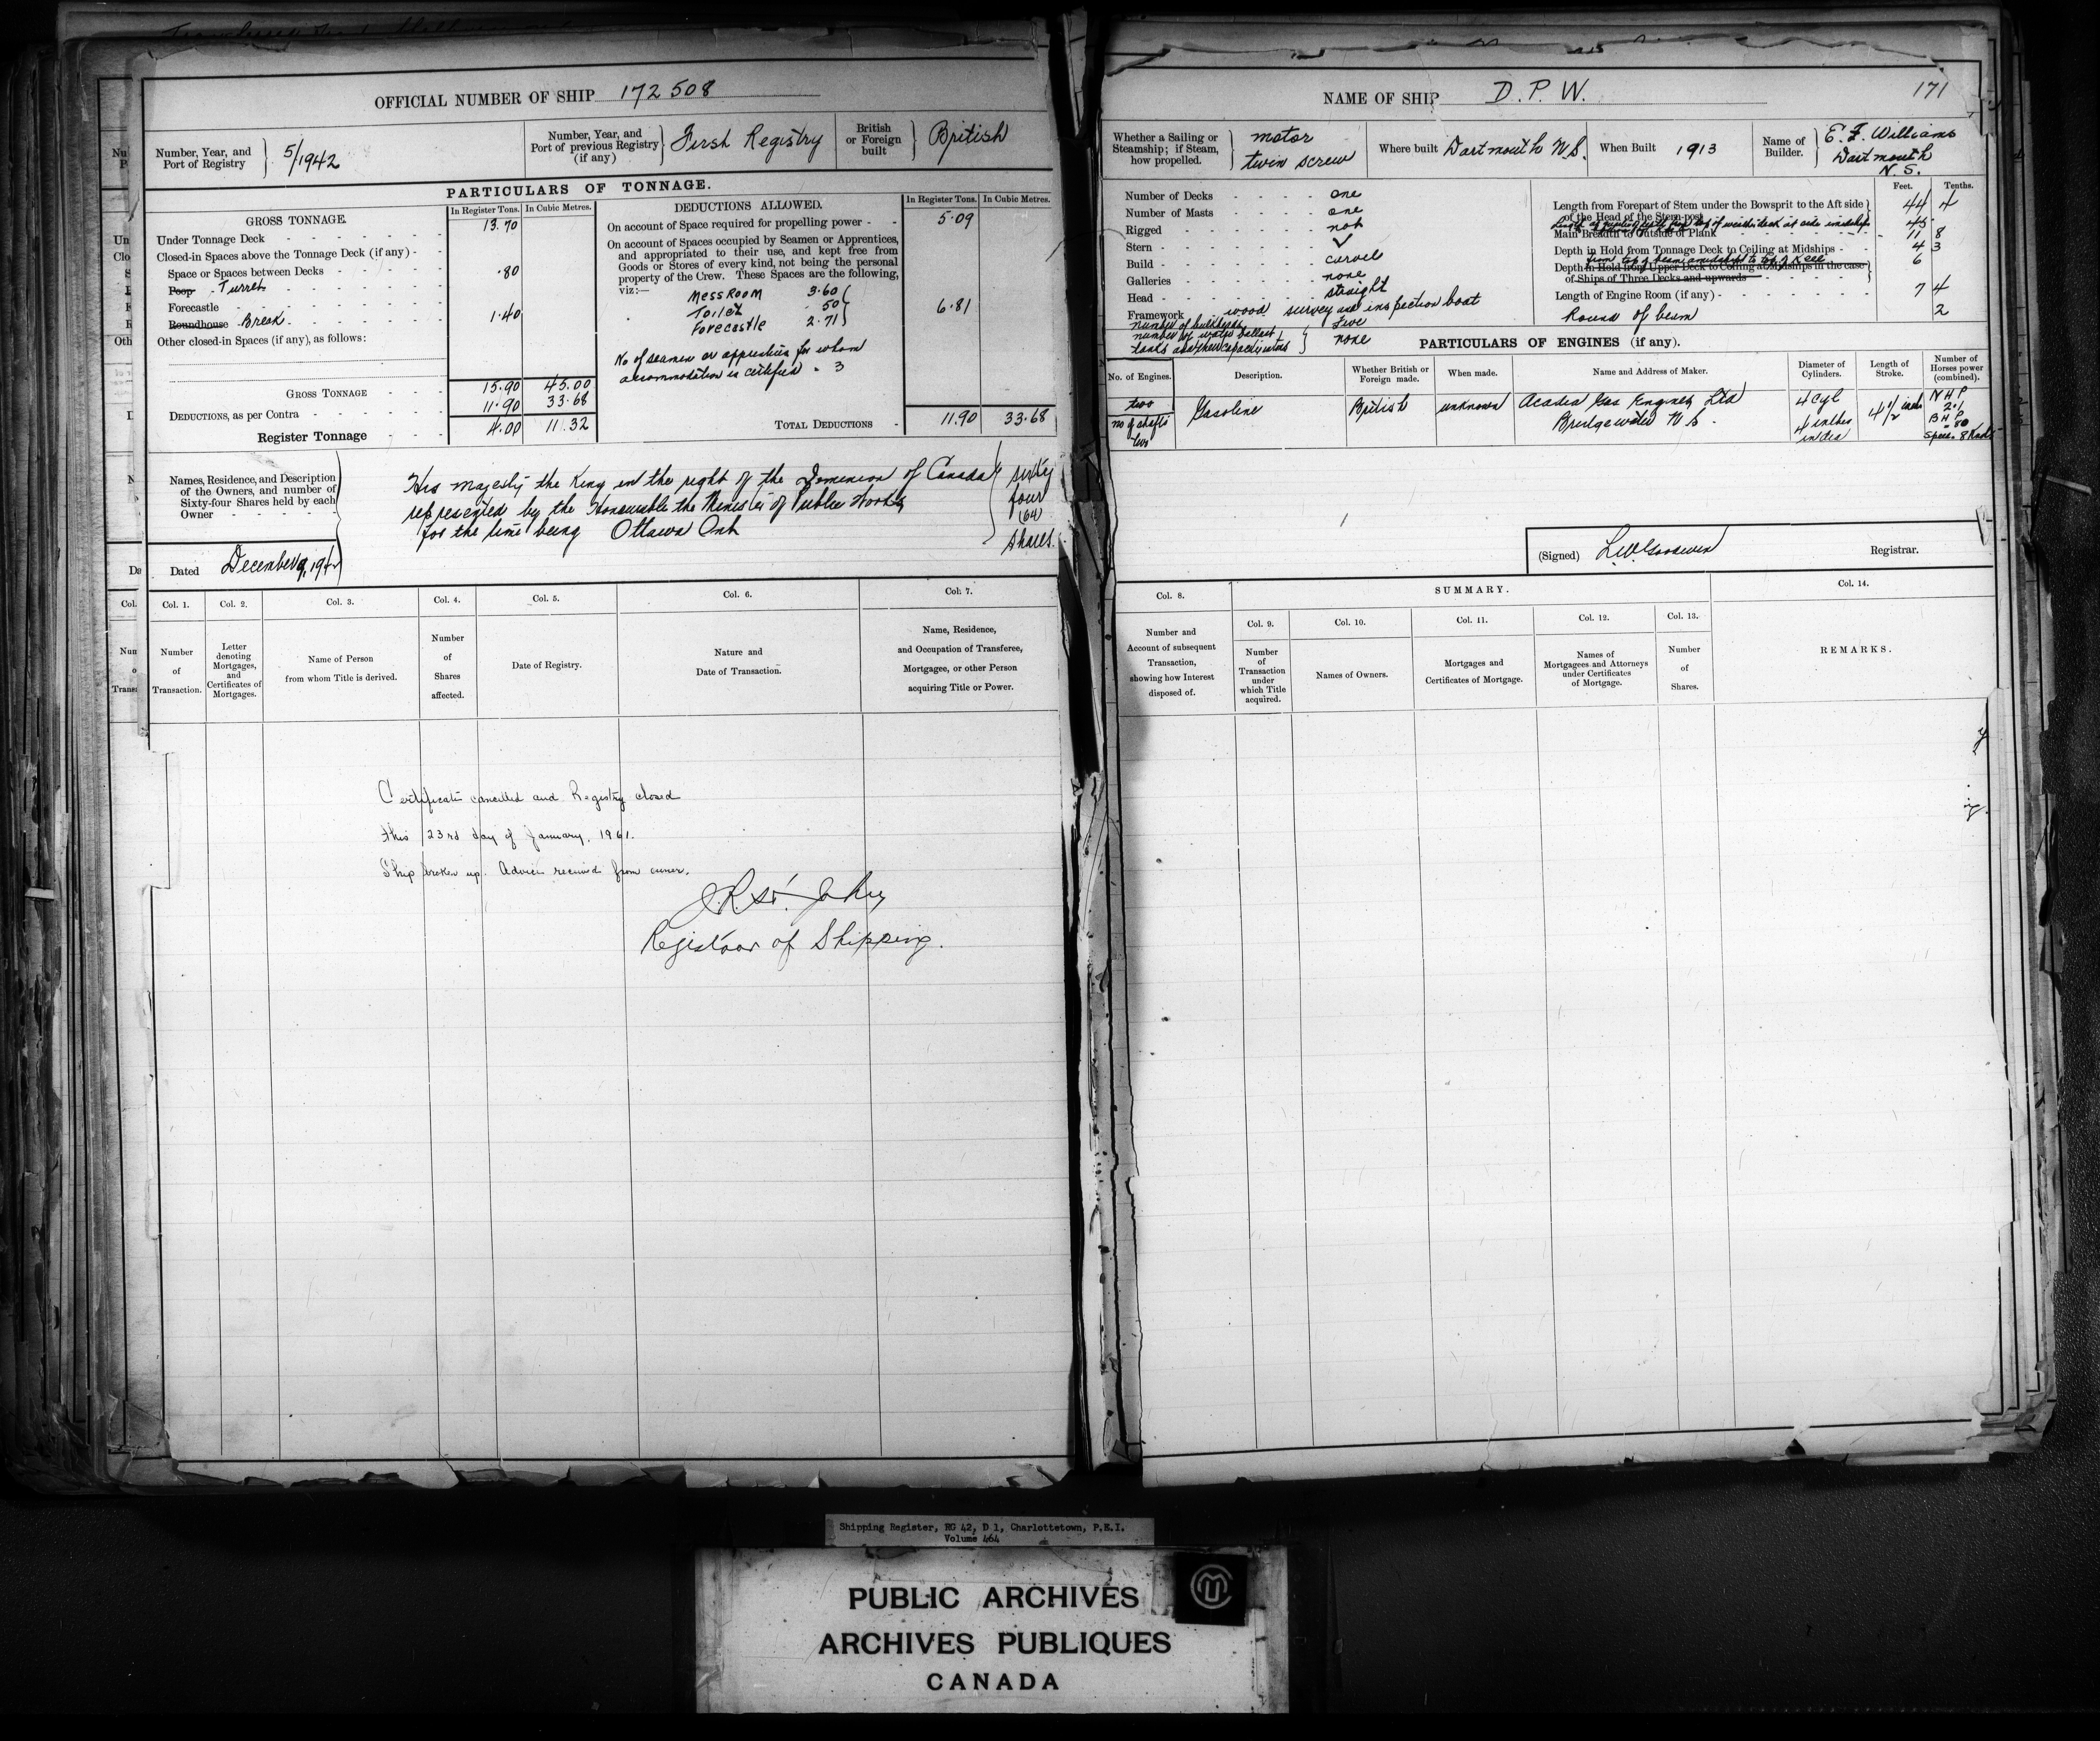 OFFICIAL NUMBER OF SHIP 172508
Number, Year, and Port of Registry 5/1942
Number, Year, and Port of previous Registry (if any) First Registry
British or Foreign built British
PARTICULARS OF TONNAGE.
GROSS TONNAGE.
In Register Tons. In Cubic Metres.
Under Tonnage Deck 13.70
Closed-in Spaces above the Tonnage Deck (if any)
Space or Spaces between Decks .80
Poop Turret
Forecastle
Roundhouse Break 1.40
Other closed-in Spaces (if any), as follows:
GROSS TONNAGE 15.90 45.00
DEDUCTIONS, as per Contra 11.90 33.68
Register Tonnage 4.00 11.32
DEDUCTIONS ALLOWED.
In Register Tons. In Cubic Metres.
On account of Space required for propelling power 5.09
On account of Spaces occupied by Seamen or Apprentices,
and appropriated to their use, and kept free from
Goods or Stores of every kind, not being the personal
property of the Crew. These Spaces are the following,
viz:—
Mess Room 3.60
Toilet 50
Forecastle 2.71
6.81
No of seamen or apprentices for whom
accommodation is certified 3
TOTAL DEDUCTIONS 11.90 33.68
Names, Residence, and Description
of the Owners, and number of
Sixty-four Shares held by each
Owner
His majesty the King in the right of the Dominion of Canada
represented by the Honourable the Minister of Public Works
for the time being Ottawa Ont
sixty
four
(64)
shares.
Dated December 9, 1942
Col. 1. Col. 2. Col. 3. Col. 4. Col. 5. Col. 6. Col. 7.
Number of Transaction.
Letter denoting Mortgages, and Certificates of Mortgages.
Name of Person from whom Title is derived.
Number of Shares affected.
Date of Registry.
Nature and Date of Transaction.
Name, Residence, and Occupation of Transferee, Mortgagee, or other Person acquiring Title or Power.
Certificate cancelled and Registry closed
this 23rd day of January, 1961.
Ship broken up. Advice received from owner.
Registrar of Shipping.
NAME OF SHIP D. P. W.
171
Whether a Sailing or Steamship; if Steam, how propelled. motor twin screw
Where built Dartmouth N.S.
When Built 1913
Name of Builder. E. F. Williams
Dartmouth
N. S.
Number of Decks one
Number of Masts one
Rigged not
Stern V
Build carvel
Galleries none
Head straight
Framework wood survey and inspection boat
number of bulkheads five
number of water ballast
tanks and their capacity in tons none
Feet. Tenths.
Length from Forepart of Stem under the Bowsprit to the Aft side
of the Head of the Stern-post 44 4
45
Main Breadth to Outside of Plank 11 8
Depth in Hold from Tonnage Deck to Ceiling at Midships 4 3
from top of beam amidships to top of keel 6
Depth in Hold from Upper Deck to Ceiling at Midships in the case
of Ships of Three Decks and upwards
Length of Engine Room (if any) 7 4
Round of beam 2
PARTICULARS OF ENGINES (if any).
No. of Engines. Description. Whether British or Foreign made. When made. Name and Address of Maker. Diameter of Cylinders. Length of Stroke. Number of Horses power (combined).
two
no of shafts
two
Gasoline British unknown
Acadia Gas Engines Ltd
Bridgewater N S.
4 cyl
4 inches
in dia
4 1/2 inches
N H P
2.1
B H P
80
Speed. 8 Knots
(Signed) L.W. Goodwin Registrar.
Col. 8. SUMMARY. Col. 14.
Col. 9. Col. 10. Col. 11. Col. 12. Col. 13.
Number and Account of subsequent Transaction, showing how Interest disposed of.
Number of Transaction under which Title acquired.
Names of Owners.
Mortgages and Certificates of Mortgage.
Names of Mortgagees and Attorneys under Certificates of Mortgage.
Number of Shares.
REMARKS.
Shipping Register, RG 42, D 1, Charlottetown, P.E.I.
Volume 464
PUBLIC ARCHIVES
ARCHIVES PUBLIQUES
CANADA